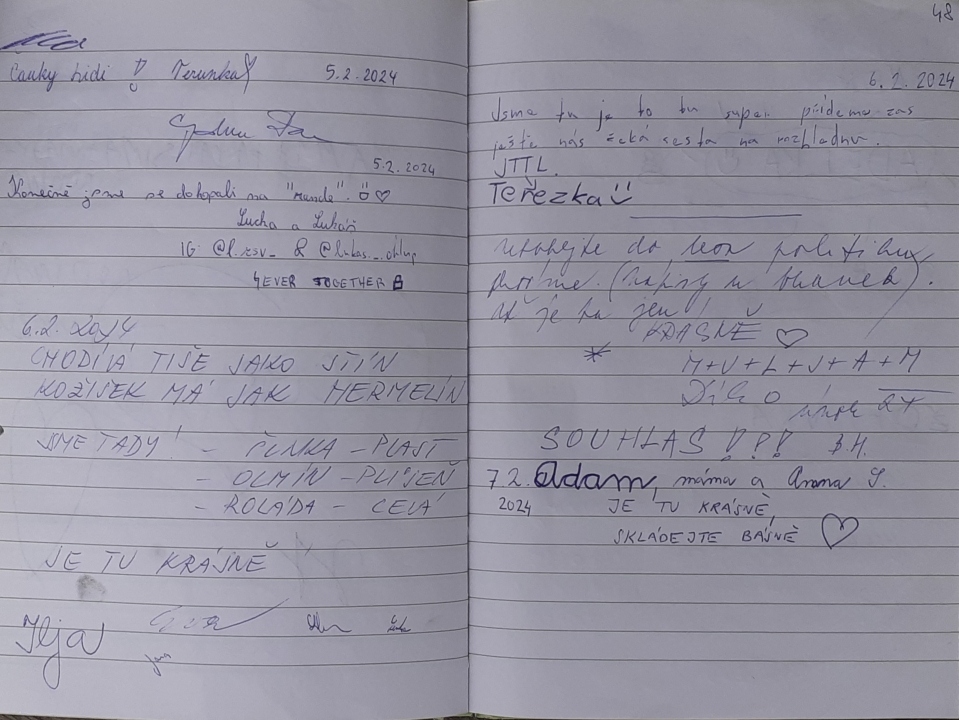 Čauky lidi! Terunka 5.2.2024
5.2.2024
Konečně jsme se dokopali na "rande".
Lucka a Lukáš
IG: @l.zsv_ & @lukas._.ohlup
4EVER TOGETHER
6.2.2024
CHODÍVÁ TIŠE JAKO STÍN
KOŽÍŠEK MÁ JAK HERMELÍN
JSME TADY! - ČINKA - PLAST
- OLMÍN - PLIJEŇ
- ROLÁDA - CELÁ
JE TU KRÁSNĚ
Ilja Eva
Jana
48
6.2.2024
Jsme tu je to tu super přídeme zas
ještě nás čeká cesta na rozhlednu.
JTTL.
Teřezka
do
prosíme. (nápisy u
Ať je to jen!
KRÁSNĚ
* M+V+L+J+A+M
Dík o
SOUHLAS!?! B.H.
7.2. Adam, máma a Anna S.
2024 JE TU KRÁSNĚ,
SKLÁDEJTE BÁSNĚ